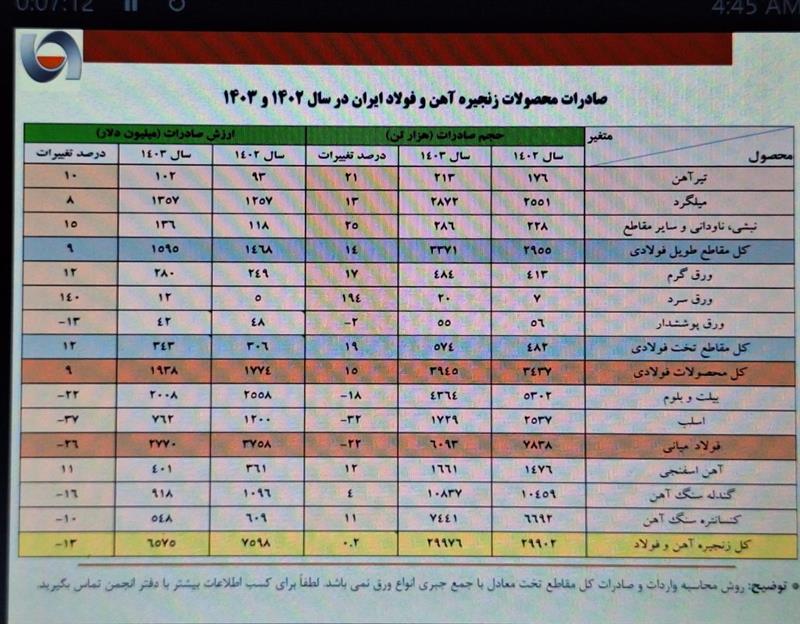 0:07:12
4:45 AM
صادرات محصولات زنجیره آهن و فولاد ایران در سال ۱۴۰۲ و ۱۴۰۳
متغیر حجم صادرات (هزار تن) ارزش صادرات (میلیون دلار)
محصول سال ۱۴۰۲ سال ۱۴۰۳ درصد تغییرات سال ۱۴۰۲ سال ۱۴۰۳ درصد تغییرات
تیرآهن ۱۷۶ ۲۱۳ ۲۱ ۹۳ ۱۰۲ ۱۰
میلگرد ۲۵۵۱ ۲۸۷۲ ۱۳ ۱۲۵۷ ۱۳۵۷ ۸
نبشی، ناودانی و سایر مقاطع ۲۲۸ ۲۸۶ ۲۵ ۱۱۸ ۱۳۶ ۱۵
کل مقاطع طویل فولادی ۲۹۵۵ ۳۳۷۱ ۱۴ ۱۴۶۸ ۱۵۹۵ ۹
ورق گرم ۴۱۳ ۴۸۴ ۱۷ ۲۴۹ ۲۸۰ ۱۲
ورق سرد ۷ ۲۰ ۱۹۴ ۵ ۱۲ ۱۴۰
ورق پوششدار ۵۶ ۵۵ -۲ ۴۸ ۴۲ -۱۳
کل مقاطع تخت فولادی ۴۸۲ ۵۷۴ ۱۹ ۳۰۶ ۳۴۳ ۱۲
کل محصولات فولادی ۳۴۳۷ ۳۹۴۵ ۱۵ ۱۷۷۴ ۱۹۳۸ ۹
بیلت و بلوم ۵۳۰۲ ۴۳۶۴ -۱۸ ۲۵۵۸ ۲۰۰۸ -۲۲
اسلب ۲۵۳۷ ۱۷۲۹ -۳۲ ۱۲۰۰ ۷۶۲ -۳۷
فولاد میانی ۷۸۳۸ ۶۰۹۳ -۲۲ ۳۷۵۸ ۲۷۷۰ -۲۶
آهن اسفنجی ۱۴۷۶ ۱۶۶۱ ۱۲ ۳۶۱ ۴۰۱ ۱۱
گندله سنگ آهن ۱۰۴۵۹ ۱۰۸۳۷ ۴ ۱۰۹۶ ۹۱۸ -۱۶
کنسانتره سنگ آهن ۶۶۹۲ ۷۴۴۱ ۱۱ ۶۰۹ ۵۴۸ -۱۰
کل زنجیره آهن و فولاد ۲۹۹۰۲ ۲۹۹۷۶ ۰.۲ ۷۵۹۸ ۶۵۷۵ -۱۳
* توضیح: روش محاسبه واردات و صادرات کل مقاطع تخت معادل با جمع جبری انواع ورق نمی باشد. لطفاً برای کسب اطلاعات بیشتر با دفتر انجمن تماس بگیرید.